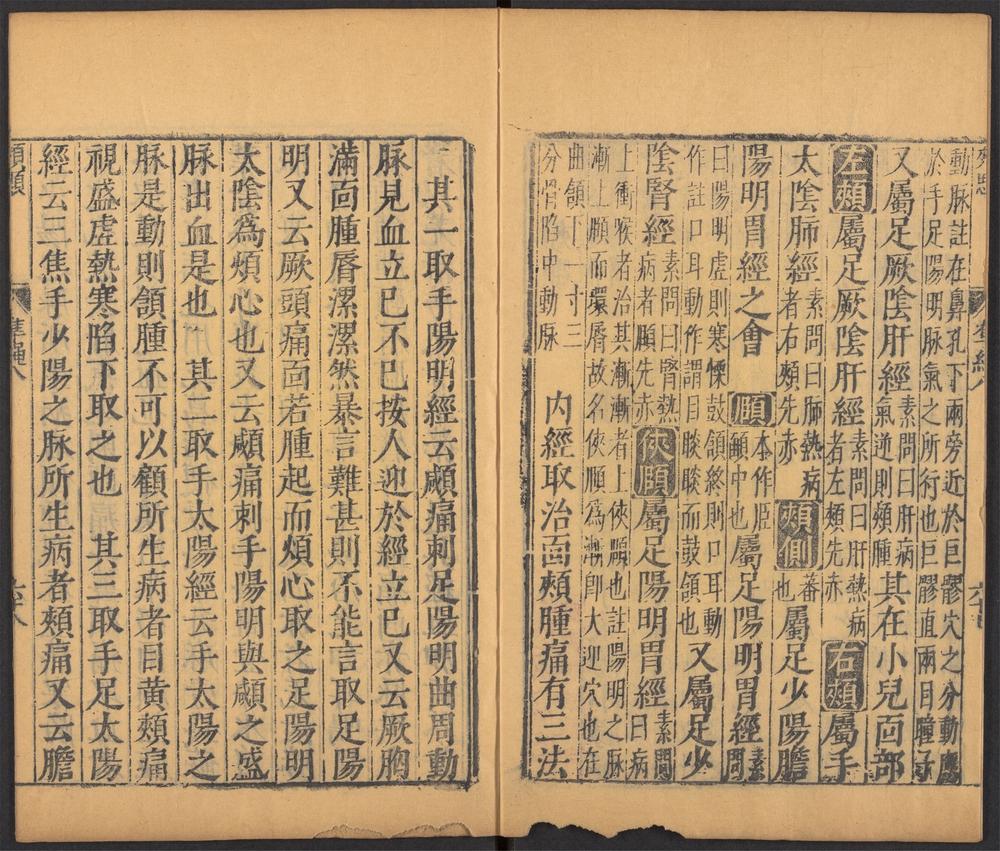 動脉註在鼻孔下兩旁近於巨髎穴之分動
於手足陽明脉氣之所行也巨髎直兩目瞳子
又屬足厥陰肝經素問曰肝病氣逆則頰腫其在小兒面部
左頰屬足厥陰肝經素問曰肝熱病者左頰先赤右頰屬手
太陰肺經素問曰肺熱病者右頰先赤頰側蕃也屬足少陽膽
陽明胃經之會頤本作𦣝顄中也屬足陽明胃經素問
曰陽明虛則寒慄鼓頷終則口耳動
作註口耳動作謂目睒睒而鼓頷也又屬足少
陰腎經素問曰腎熱病者頤先赤俠頤屬足陽明胃經素問曰病
上衝喉者治其漸漸者上俠頤也註陽明之脉
漸上頤而環脣故名俠頤為漸卽大迎穴也在
曲頷下一寸三
分骨陷中動脉
內經取治面頰腫痛有三法
其一取手陽明經云顑痛刺足陽明曲周動
脉見血立已不已按人迎於經立已又云厥胸
滿面腫脣漯漯然暴言難甚則不能言取足陽
明又云厥頭痛面若腫起而煩心取之足陽明
太陰爲煩心也又云顑痛刺手陽明與顑之盛
脉出血是也 其二取手太陽經云手太陽之
脉是動則頷腫不可以顧所生病者目黃頰痛
視盛虛熱寒陷下取之也 其三取手足太陽
經云三焦手少陽之脉所生病者頰痛又云膽